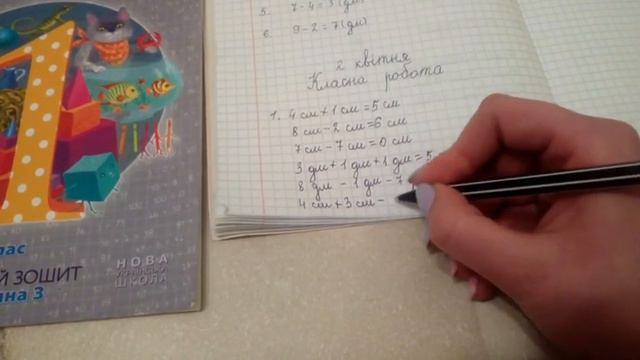 5. 7-4=3(дм)
6. 9-2=7(дм)
2 квітня
Класна робота
1. 4 см+1 см=5 см
8 см-2 см=6 см
7 см-7 см=0 см
3 дм+1 дм+1 дм=5
8 дм-1 дм-7
4 см+3 см-
1
ЗОШИТ
3
НОВА
УКРАЇНСЬКА
ШКОЛА